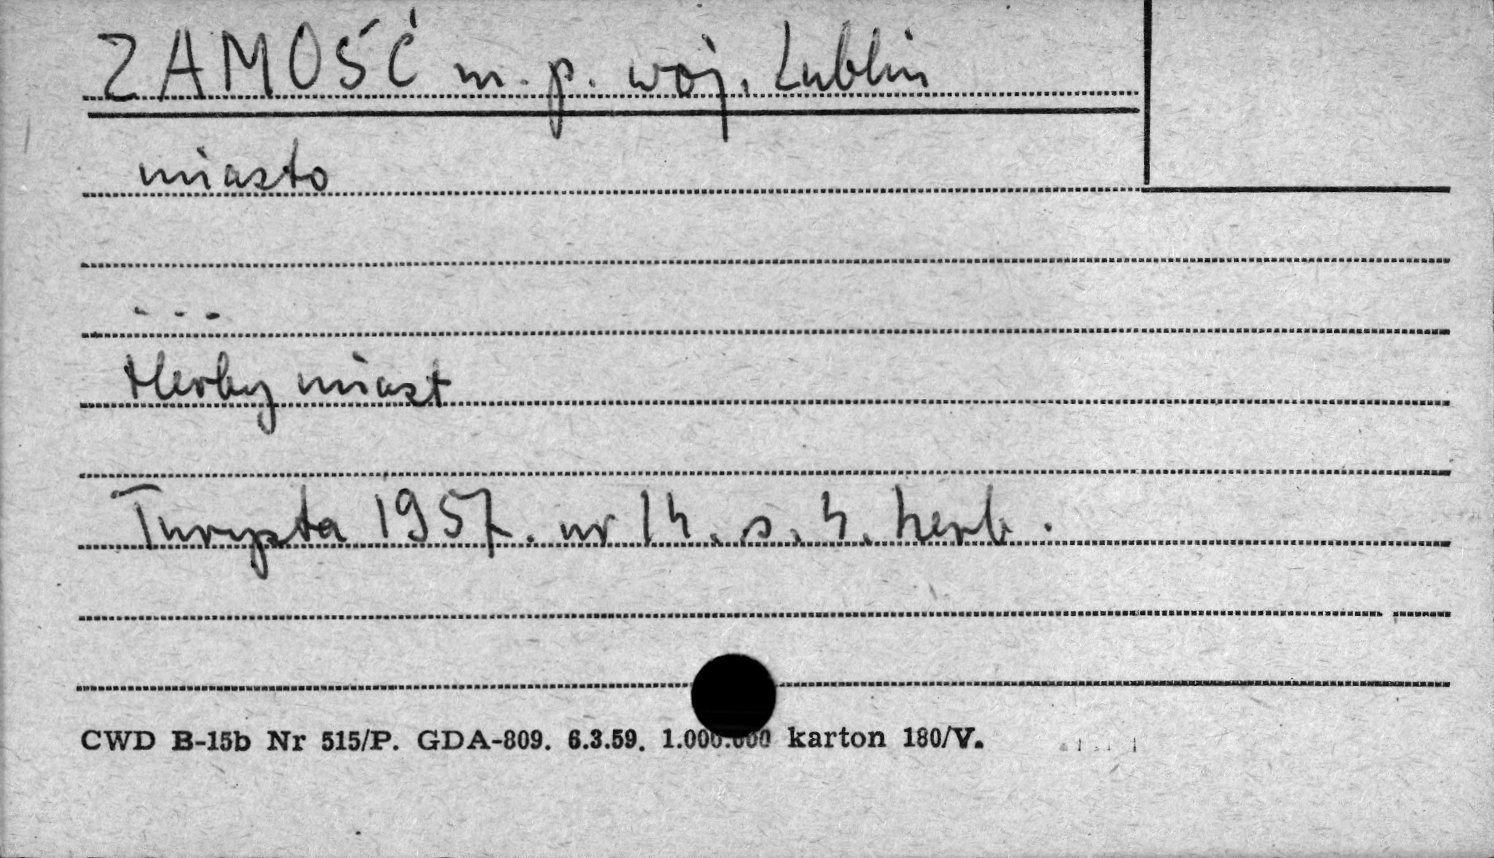 ZAMOŚĆ m. p. woj. Lublin
miasto
- - -
Herby miast
Turysta 1957. nr 14. s. 4. herb.
CWD B-15b Nr 515/P. GDA-809. 6.3.59. 1.000.000 karton 180/V.